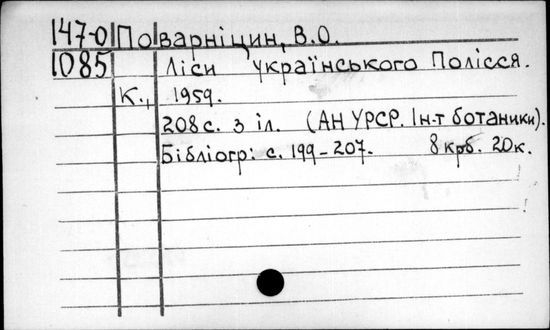 147-0 Поварніцин, В.О.
1085 Ліси українського Полісся.
К., 1959.
208 с. з іл. (АН УРСР. Ін-т ботаники).
Бібліогр: с. 199-207. 8 крб. 20 к.